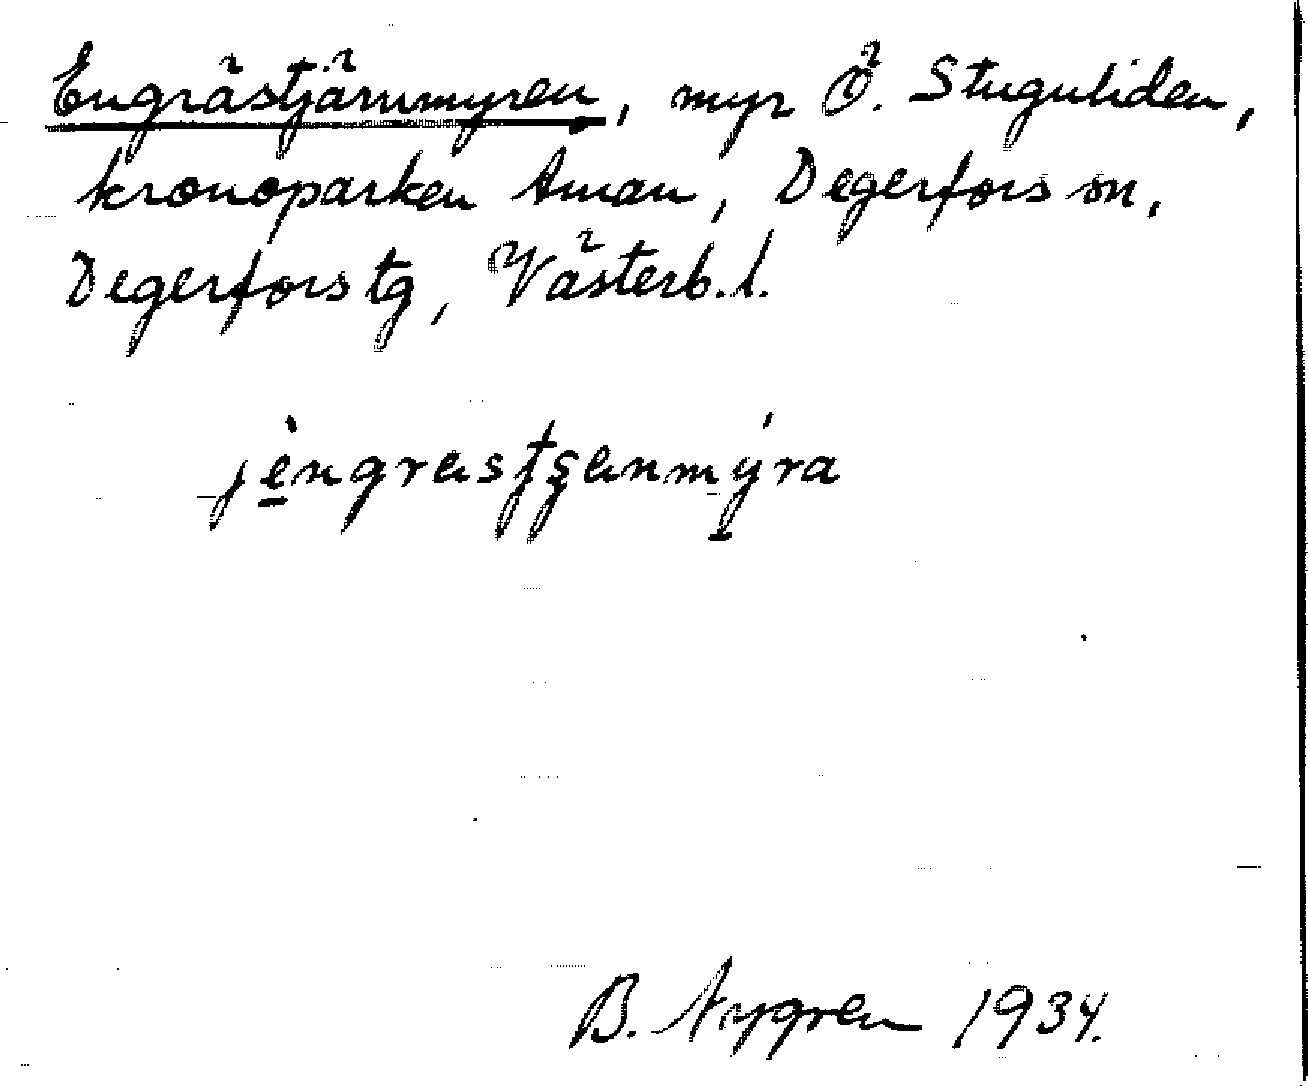 Engrästjärnmyren, myr Ö. Stuguliden,
kronoparken Åman, Degerfors sn,
Degerfors tg, Västerb. l.
B. Nygren 1934.